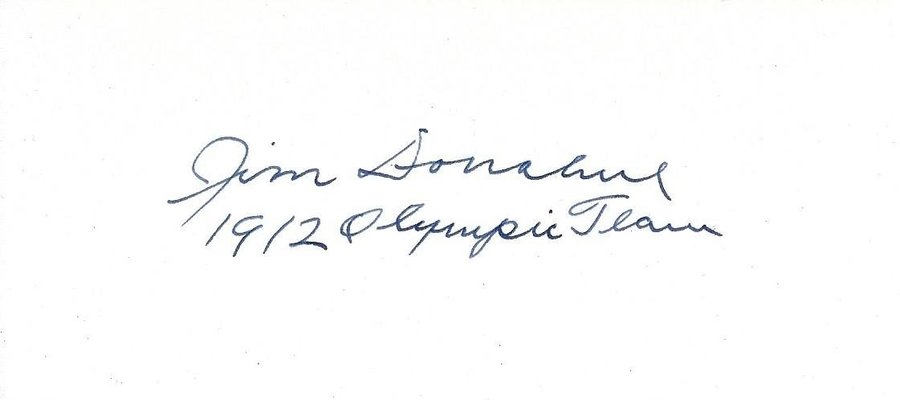 Jim Donahue
1912 Olympic Team